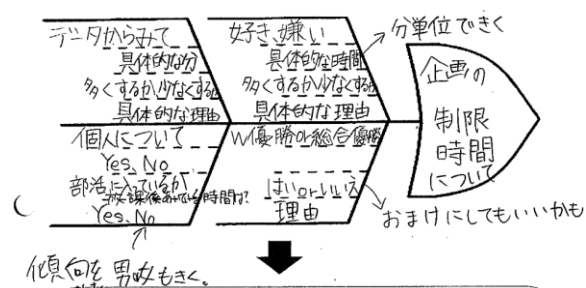 データからみて
具体的な分
多くするか少なくするか
具体的な理由
好き、嫌い
具体的な時間
多くするか少なくするか
具体的な理由
分単位できく
企画の
制限
時間
について
個人について
Yes、No
部活に入っているか
放課後あいている時間は?
Yes、No
W優勝or総合優勝
はいorいいえ
理由
おまけにしてもいいかも
傾向を男女もきく。